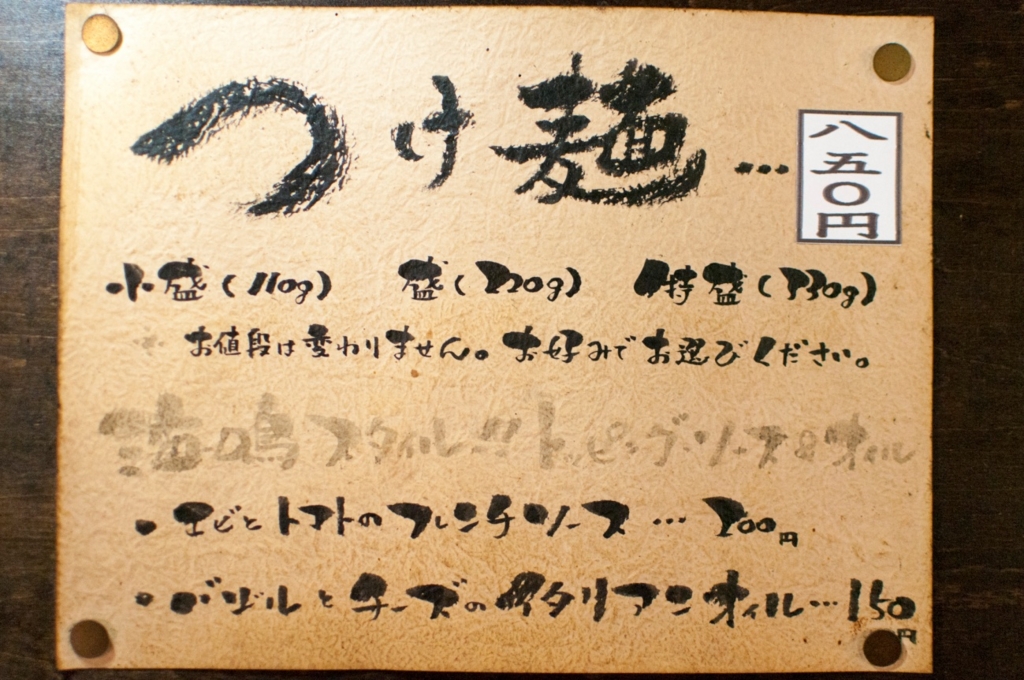 つけ麺… 八五〇円
小盛(110g) 盛(220g) 特盛(330g)
お値段は変わりません。お好みでお選びください。
海鳴スタイル!!トッピングソース&オイル
・エビとトマトのフレンチソース … 200円
・バジルとチーズのイタリアンオイル…150円